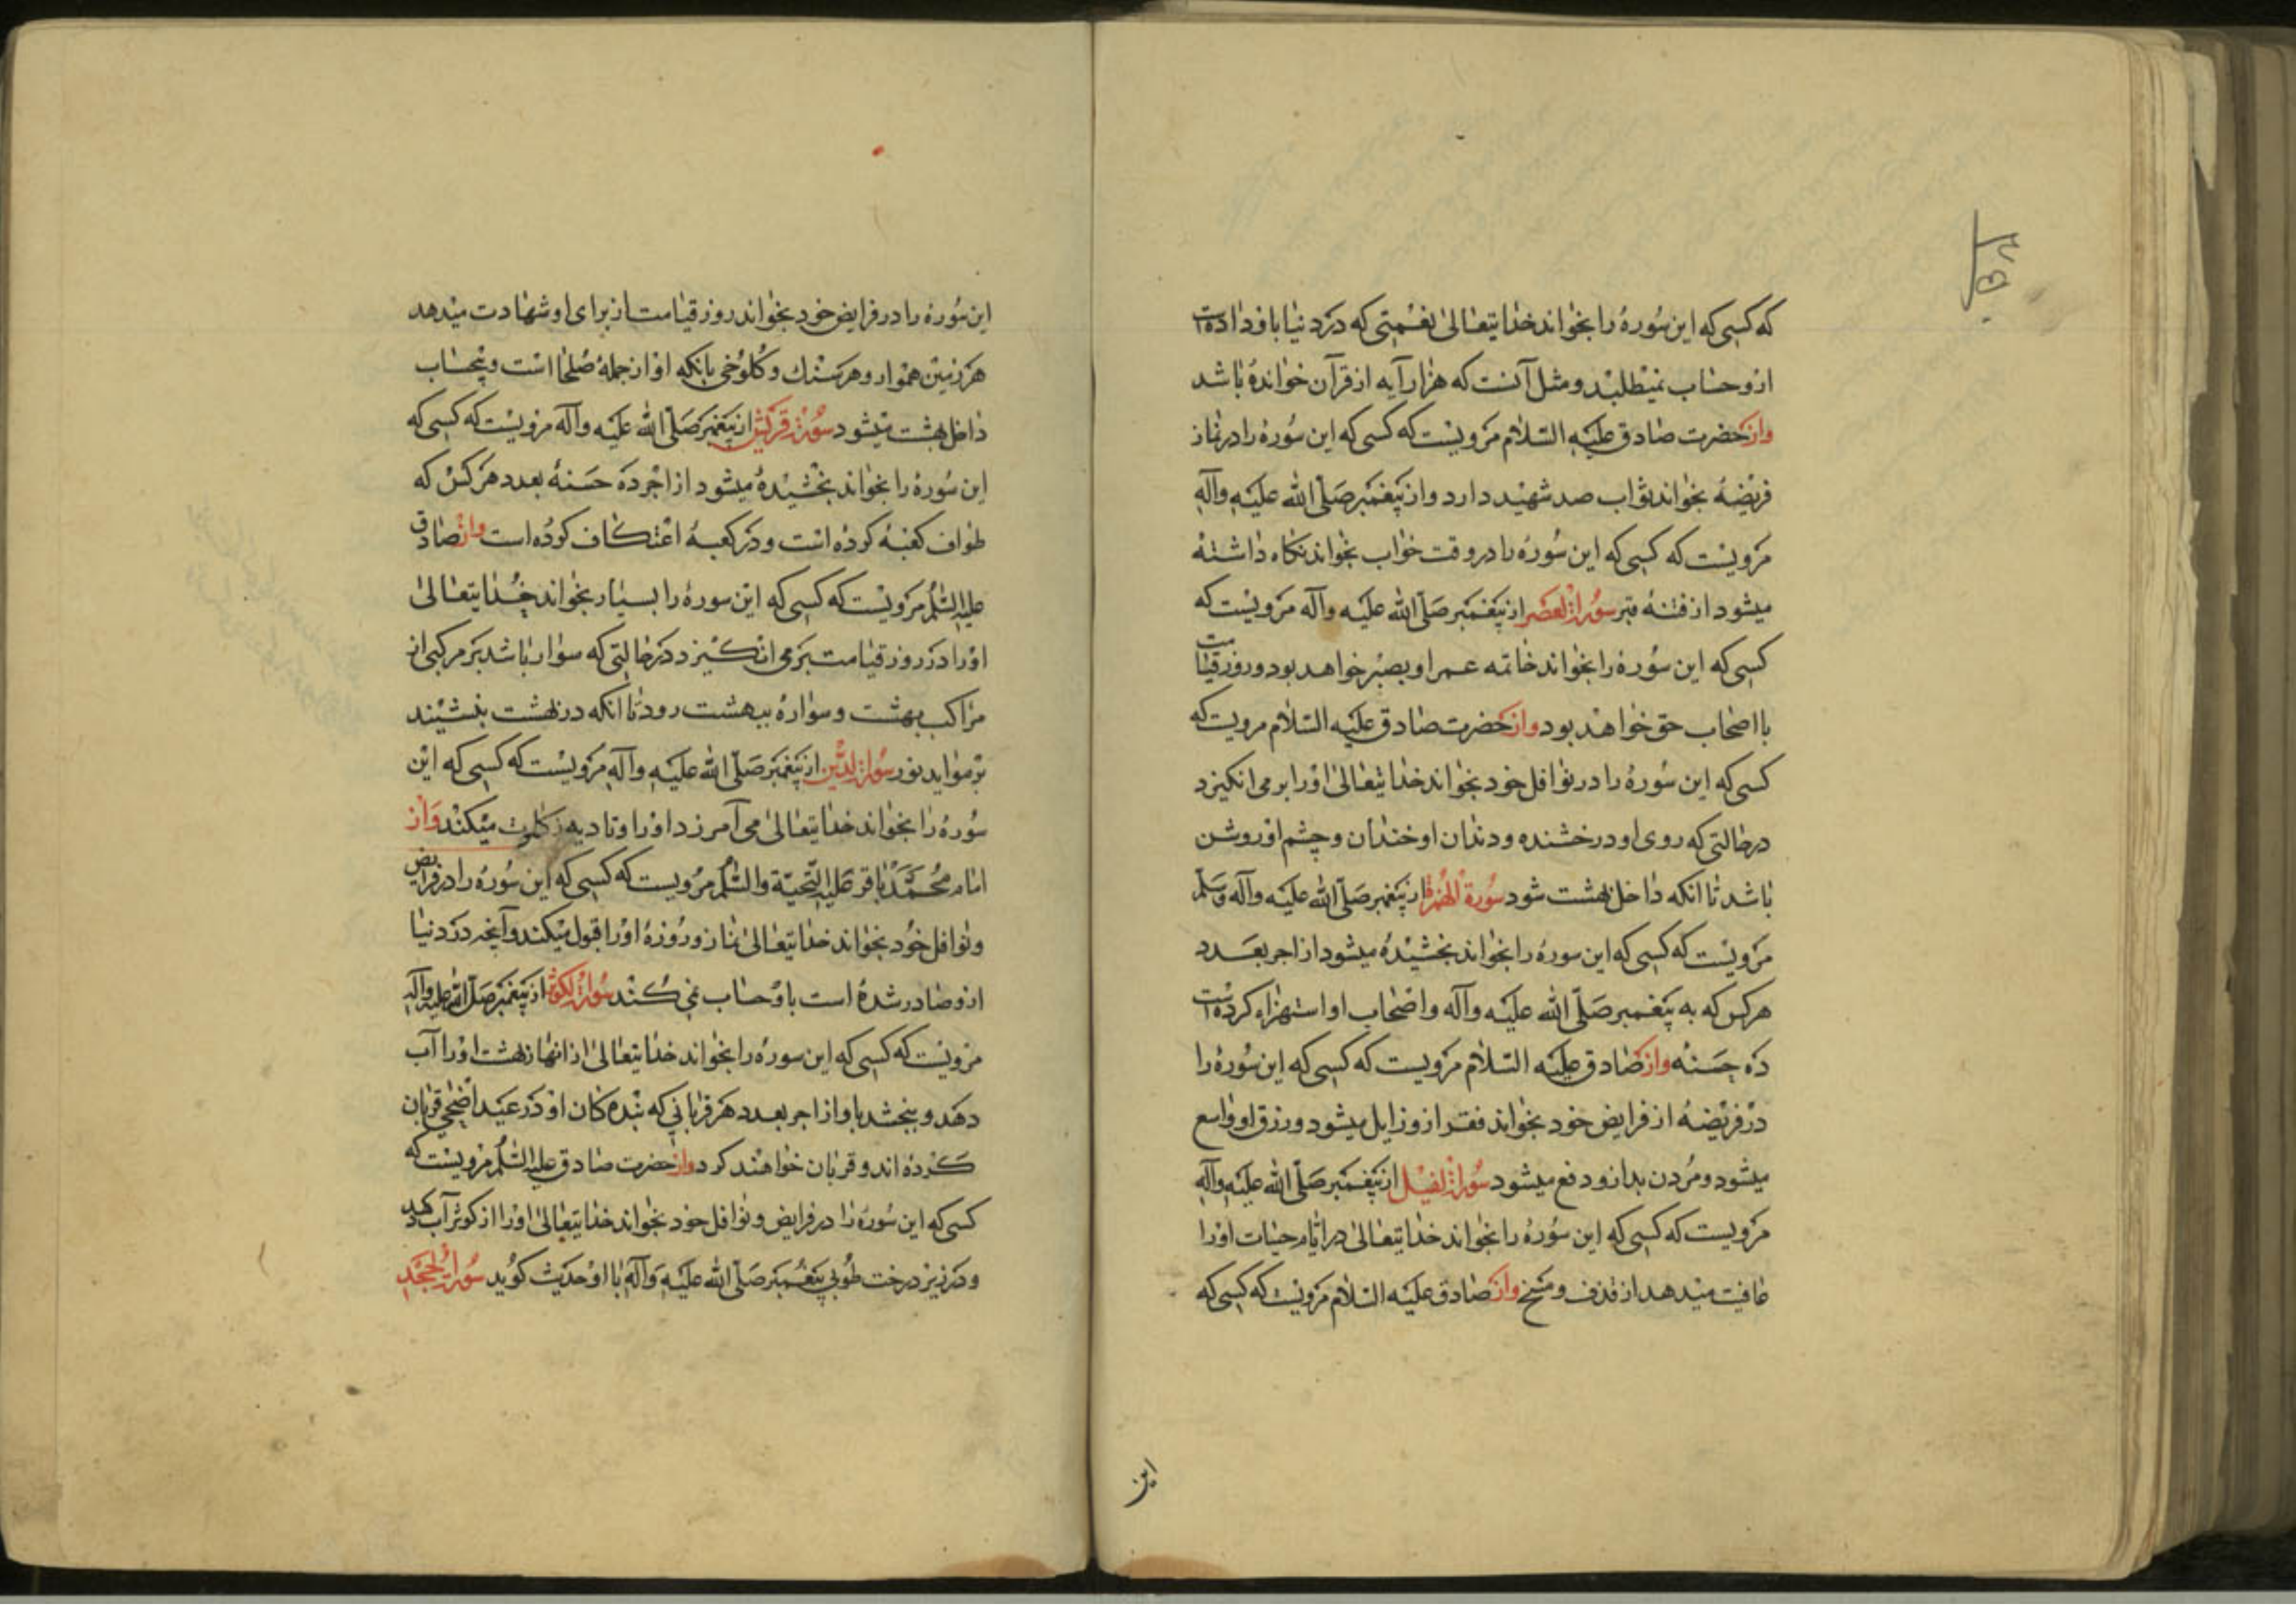 که کسی که این سُورهٔ را بخواند خدایتعالیٰ نعمتی که در دنیا باو داده است
ازو حساب نمیطلبد و مثل آنست که هزار آیه از قرآن خوانده باشد
واز حضرت صادق علیه السلام مرویست که کسی که این سُوره را در نماز
فریضهٔ بخواند ثواب صد شهید دارد واز پیغمبر صَلّی الله علیه وآله
مرویست که کسی که این سُوره را در وقت خواب بخواند نکاه داشته
میشود از فتنهٔ قبر سورة العصر از پیغمبر صَلّی الله علیه وآله مرویست که
کسی که این سُوره را بخواند خاتمه عمر او بصبر خواهد بود و روز قیامت
با اصحاب حق خواهد بود واز حضرت صادق علیه السلام مرویست که
کسی که این سُوره را در نوافل خود بخواند خدایتعالیٰ اورا برمی انکیزد
در حالتی که روی او درخشنده و دندان او خندان و چشم او روشن
باشد تا انکه داخل بهشت شود سُورة الهُمزة از پیغمبر صَلّی الله علیه وآله وسَلّم
مرویست که کسی که این سوره را بخواند بخشیده میشود از اجر بعدد
هر کس که به پیغمبر صَلّی الله علیه وآله واصحاب او استهزاء کرده است
ده حسنه واز صادق علیه السلام مرویست که کسی که این سُوره را
در فریضهٔ از فرایض خود بخواند فقر ازو زایل میشود و رزق او واسع
میشود و مُردن بد ازو دفع میشود سُورة الفیل از پیغمبر صَلّی الله علیه وآله
مرویست که کسی که این سُوره را بخواند خدایتعالیٰ در ایام حیات اورا
عافیت میدهد از قذف و مسخ واز صادق علیه السلام مرویست که کسی که
این
این سُوره را در فرایض خود بخواند روز قیامت از برای او شهادت میدهد
هر زمین هموار و هر سنک و کلوخی بانکه او از جملهٔ صُلحا است و بیحساب
داخل بهشت میشود سورة قریش از پیغمبر صَلّی الله علیه وآله مرویست که کسی که
این سُوره را بخواند بخشیده میشود از اجر ده حَسنهٔ بعدد هر کس که
طواف کعبهٔ کرده است و در کعبهٔ اعتکاف کرده است واز صادق
علیه السلم مرویست که کسی که این سوره را بسیار بخواند خدایتعالیٰ
اورا در روز قیامت برمی انکیزد در حالتی که سوار باشد بر مرکبی از
مراکب بهشت و سواره ببهشت رود تا انکه در بهشت بنشیند
بر مواید نور سورة الدین از پیغمبر صَلّی الله علیه وآله مرویست که کسی که این
سُوره را بخواند خدایتعالیٰ می آمرزد اورا وتادیه زکوت میکند واز
امام محمّد باقر علیه التحیّة والسلم مرویست که کسی که این سُوره را در فرایض
ونوافل خود بخواند خدایتعالیٰ نماز و روزهٔ اورا قبول میکند وآنچه در دنیا
ازو صادر شده است باو حساب نمی کند سورة الکوثر از پیغمبر صَلّی الله علیه وآله
مرویست که کسی که این سوره را بخواند خدایتعالیٰ از انهار بهشت اورا آب
دهد و ببخشد باو از اجر بعدد هر قربانی که بندکان او در عید اضحی قربان
کرده اند و قربان خواهند کرد واز حضرت صادق علیه السلم مرویست که
کسی که این سُوره را در فرایض ونوافل خود بخواند خدایتعالیٰ اورا از کوثر آب دهد
و در زیر درخت طُوبی پیغمبر صَلّی الله علیه وآله با او حدیث کوید سُورة الجحد